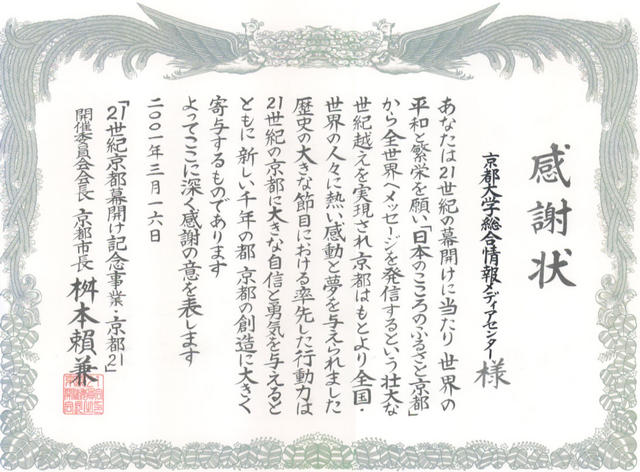 感謝状
京都大学総合情報メディアセンター 様
あなたは21世紀の幕開けに当たり 世界の
平和と繁栄を願い「日本のこころのふるさと京都」
から全世界へメッセージを発信するという壮大な
世紀越えを実現され 京都はもとより全国・
世界の人々に熱い感動と夢を与えられました
歴史の大きな節目における率先した行動力は
21世紀の京都に大きな自信と勇気を与えると
ともに 新しい千年の都 京都の創造に大きく
寄与するものであります
よってここに深く感謝の意を表します
二〇〇一年三月一六日
「21世紀京都幕開け記念事業・京都21」
開催委員会会長 京都市長 桝本賴兼